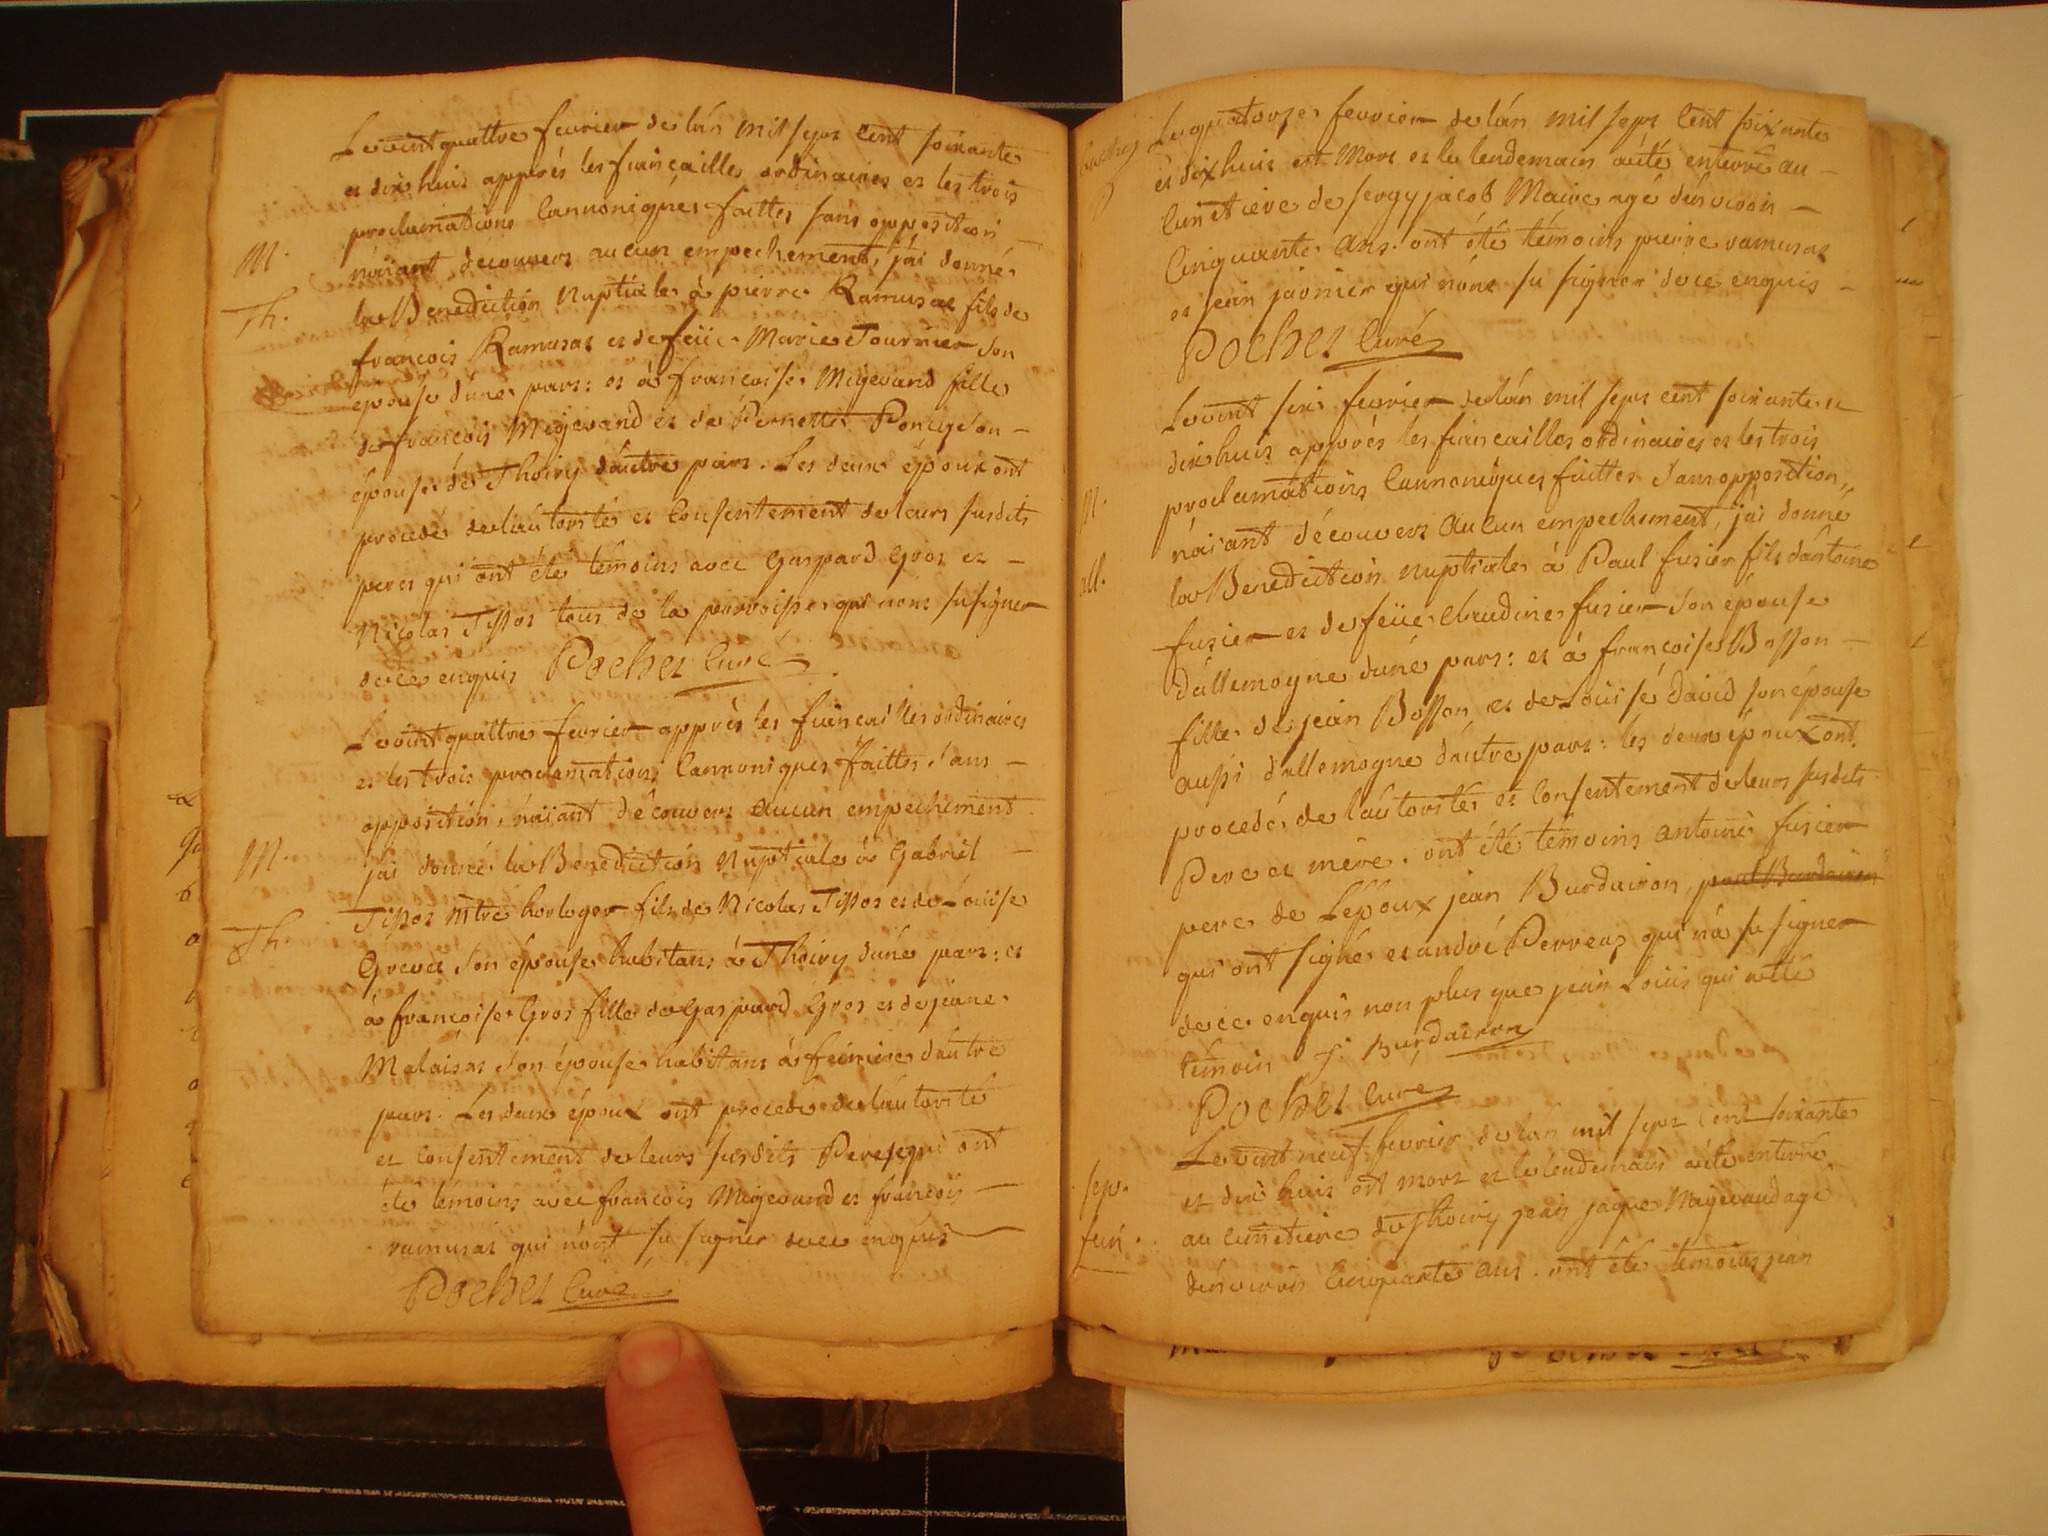 Le vint quattre fevrier de lán mil sept Cent soixante
et dix huit apprés les fiançailles ordinaires et les trois
proclamations Cannoniques faittes sans opposition
M.
náiiant décovvert aucun empechement, jái donné
Th.
la Benediction Nuptiale à pierre Ramusat fils de
françois Ramusat et de feüe Marie Tournier son
épouse d'une part: et à françoise Migevand fille
de françois Migevand et de Pernette Poncy son
épouse de Thoiry d'autre part. Les deux époux ont
procédé de láutorité et Consentement de leurs susdits
peres qui ont été témoins avec Gaspard Gros et
Nicolas Tissot tous de la parroisse qui nont su signer
de ce enquis Pochet Curé
Le vint quattre fevrier apprés les fiançailles ordinaires
et les trois proclamations Cannoniques faittes sans
opposition, náiiant découvert aucun empechement
M.
jai donné la Benediction Nuptiale à Gabriël
Th.
Tissot mtre horloger fils de Nicolas Tissot et de Loüise
Grevet son épouse habitans à Thoiry d'une part: et
à françoise Gros fille de Gaspard Gros et de jeanne
Malaisat son épouse habitans à feiniere d'autre
part. Les deux époux ont procédé de láutorité
et Consentement de leurs susdits Peres qui ont
été témoins avec françois Migevand et françois
ramusat qui nónt su signer de ce enquis
Pochet Curé
Le quatorze fevrier de lán mil sept Cent soixante
et dix huit est Mort et le lendemain a été enterré au
Cimetiere de sergy jacob Maire agé d'environ
Cinquante ans. ont été témoins pierre ramusat
et jean javnier qui nónt su signer de ce enquis
Pochet Curé
Le vint six fevrier de lán mil sept cent soixante et
dix huit apprés les fiançailles ordinaires et les trois
proclamations Cannoniques faittes sans opposition,,
M.
náiant découvert aucun empechement, jái donné
all.
la Benediction nuptiale à Paul fusier fils dántoine
fusier et de feüe Claudine fusier son épouse
d'allemogne d'une part: et à françoise Bosson
fille de jean Bosson et de Loüise David son épouse
aussi d'allemogne d'autre part: les deux époux ont
procedé de láutorité et Consentement de leurs susdits
Pere et mère. ont été témoins antoine fusier
pere de Lépoux jean Burdairon, paul Burdairon
qui ont signé et andré Perreaz qui n'a su signer
de ce enquis non plus que jean Loüis qui a été
témoin J. Burdairon
Pochet Curé
Le vint neuf fevrier de lan mil sept Cent soixante
sep.
et dix huit est mort et le lendemain a été enterré
au cimetiere de Thoiry jean jaque Migevand agé
d'environ Cinquante ans. ont été temoins jean